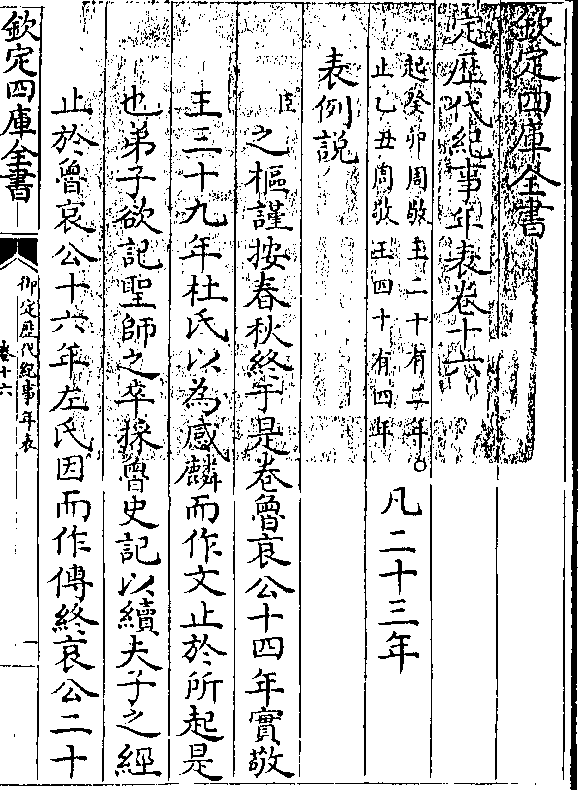 欽定四庫全書
定歷代紀事年表卷十六
起癸卯周敬王二十有二年
止乙丑周敬王四十有四年
凡二十三年
表例説
臣之樞謹按春秋終于是卷魯哀公十四年實敬
王三十九年杜氏以為感麟而作文止於所起是
也弟子欲記聖師之卒採魯史記以續夫子之經
止於魯哀公十六年左氏因而作傳終哀公二十
欽定四庫全書
御定歷代紀事年表
卷十六
一